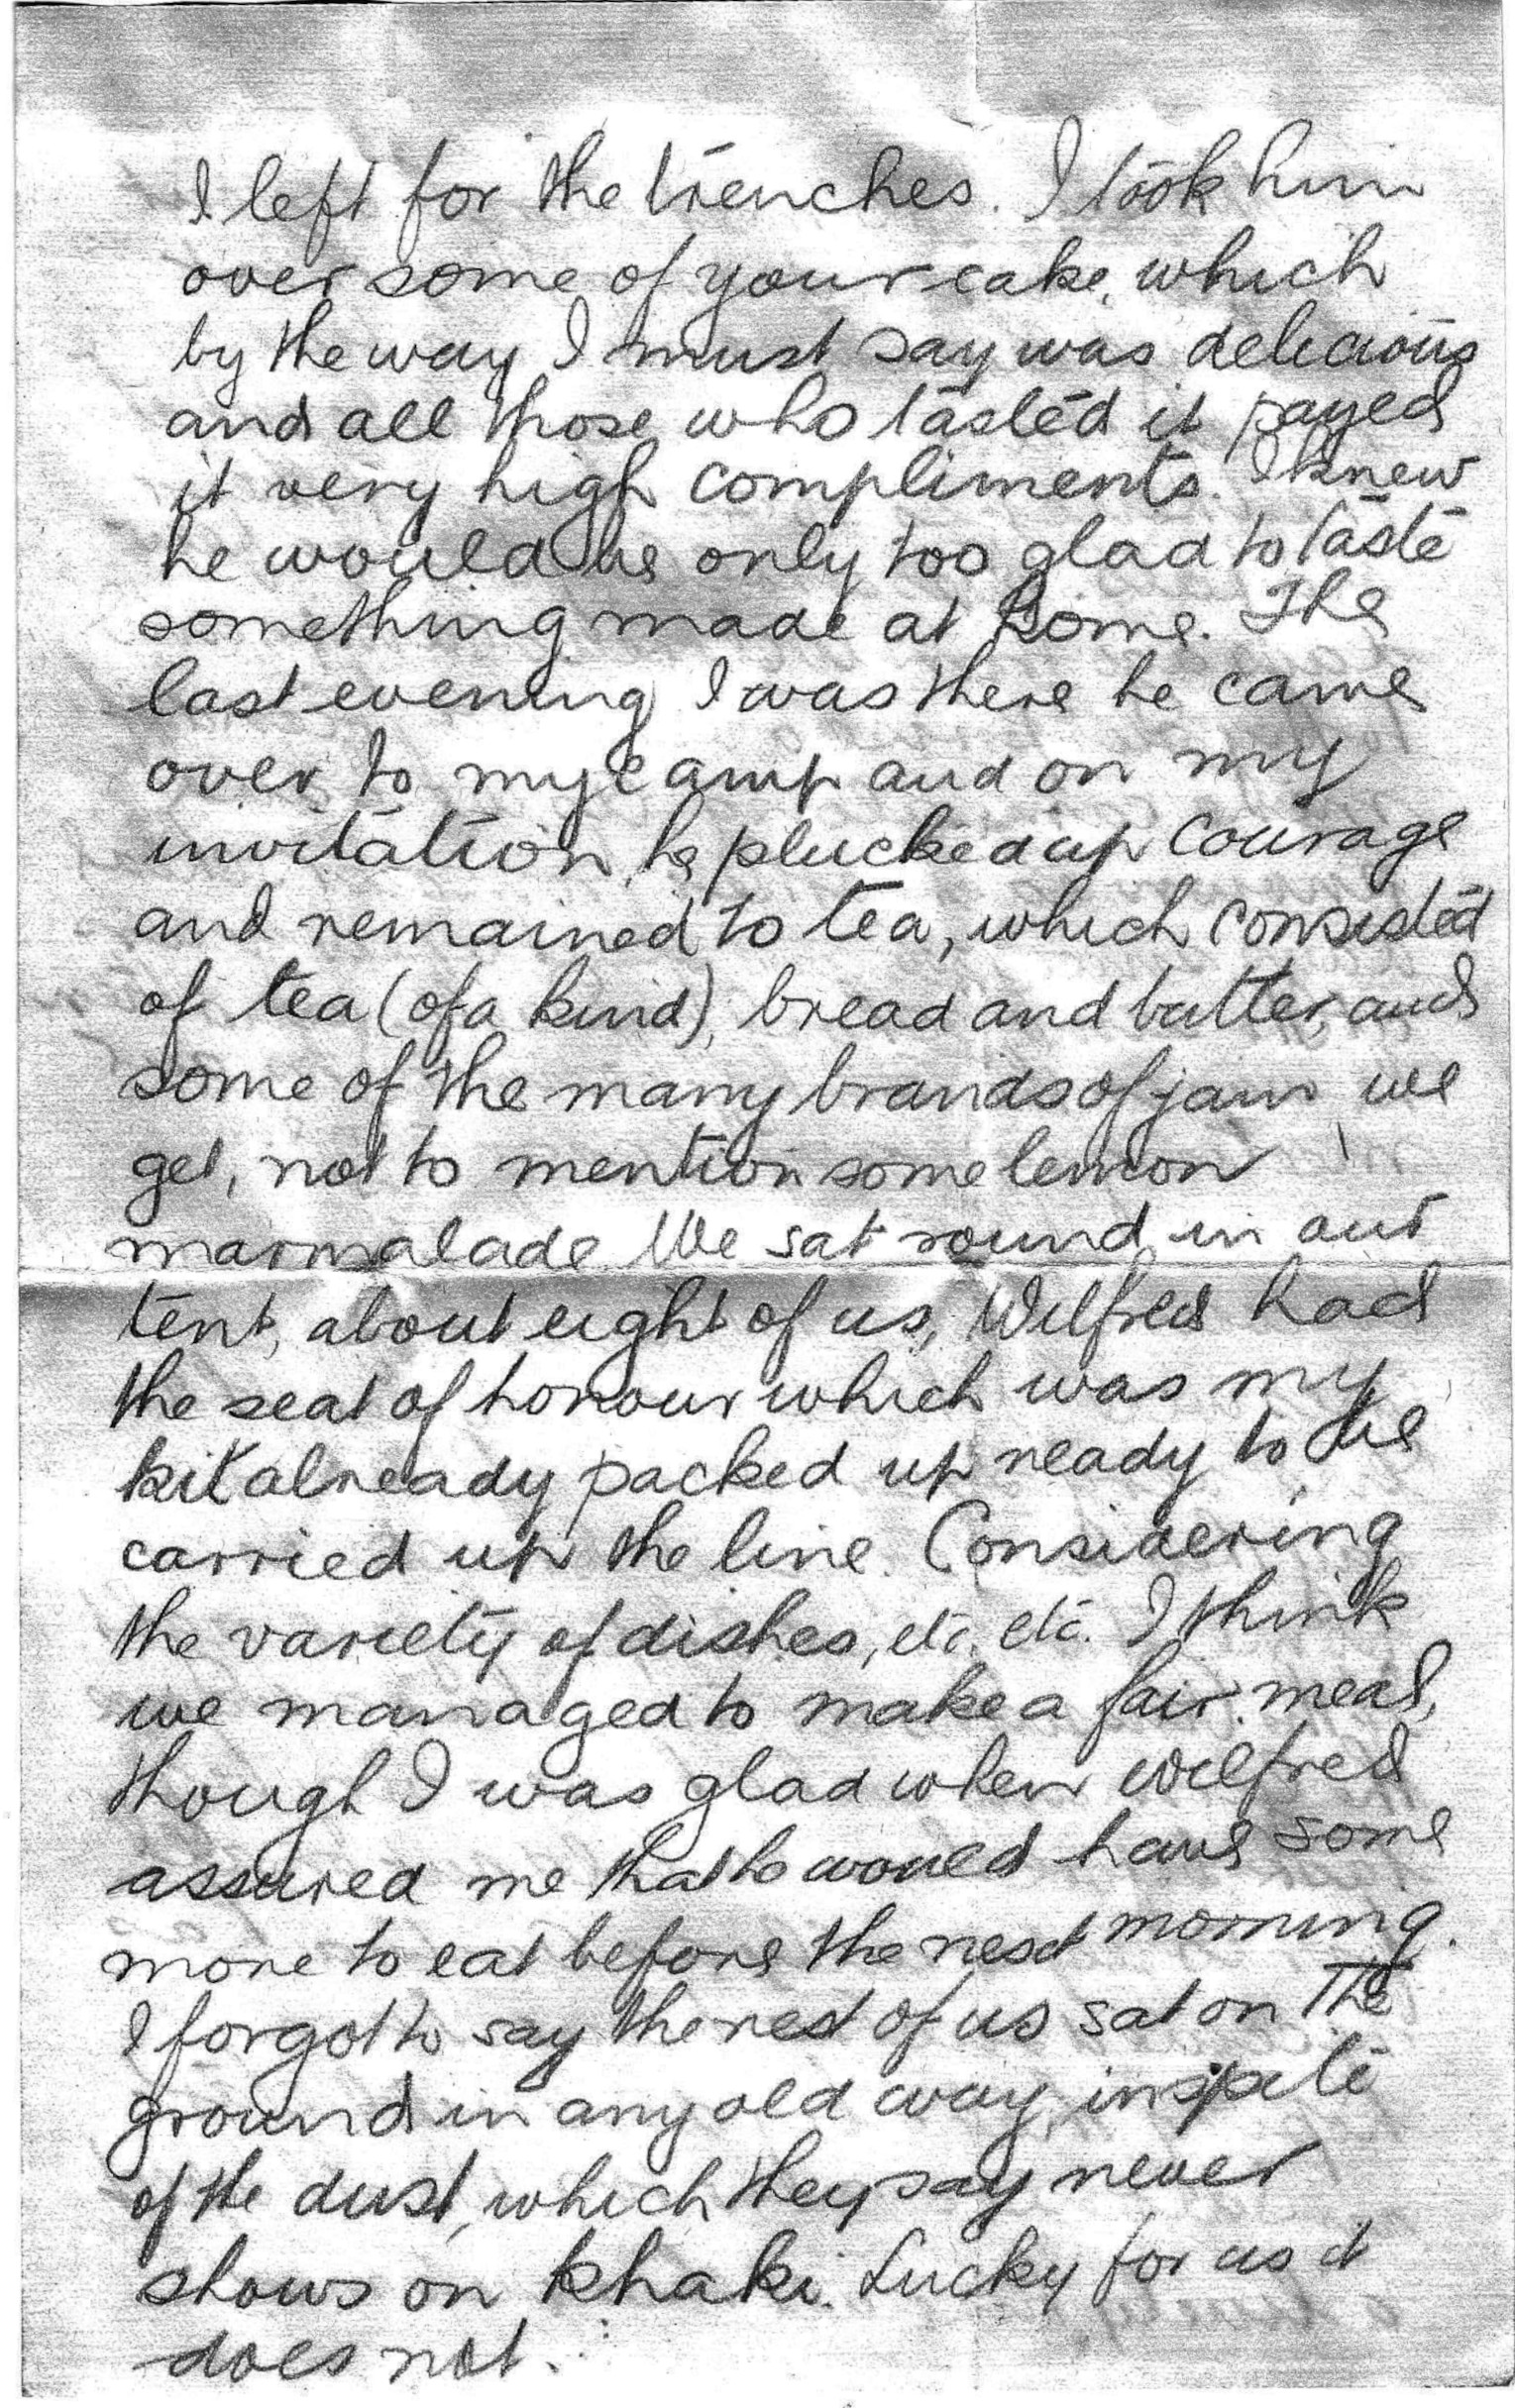 I left for the trenches. I took him
over some of your cake, which
by the way I must say was delicious
and all those who tasted it payed
it very high compliments. I knew
he would be only too glad to taste
something made at home. The
last evening I was there he came
over to my camp and on my
invitation, he plucked up courage
and remained to tea, which consisted
of tea (of a kind), bread and butter, and
some of the many brands of jam we
get, not to mention some lemon
marmalade. We sat round in our
tent, about eight of us, Wilfred had
the seat of honour which was my
kit already packed up ready to be
carried up the line. Considering
the variety of dishes, etc. etc. I think
we managed to make a fair meal,
though I was glad when Wilfred
assured me that he would have some
more to eat before the next morning.
I forgot to say the rest of us sat on the
ground in any old way, in spite
of the dust, which they say never
shows on khaki. Lucky for us it
does not.